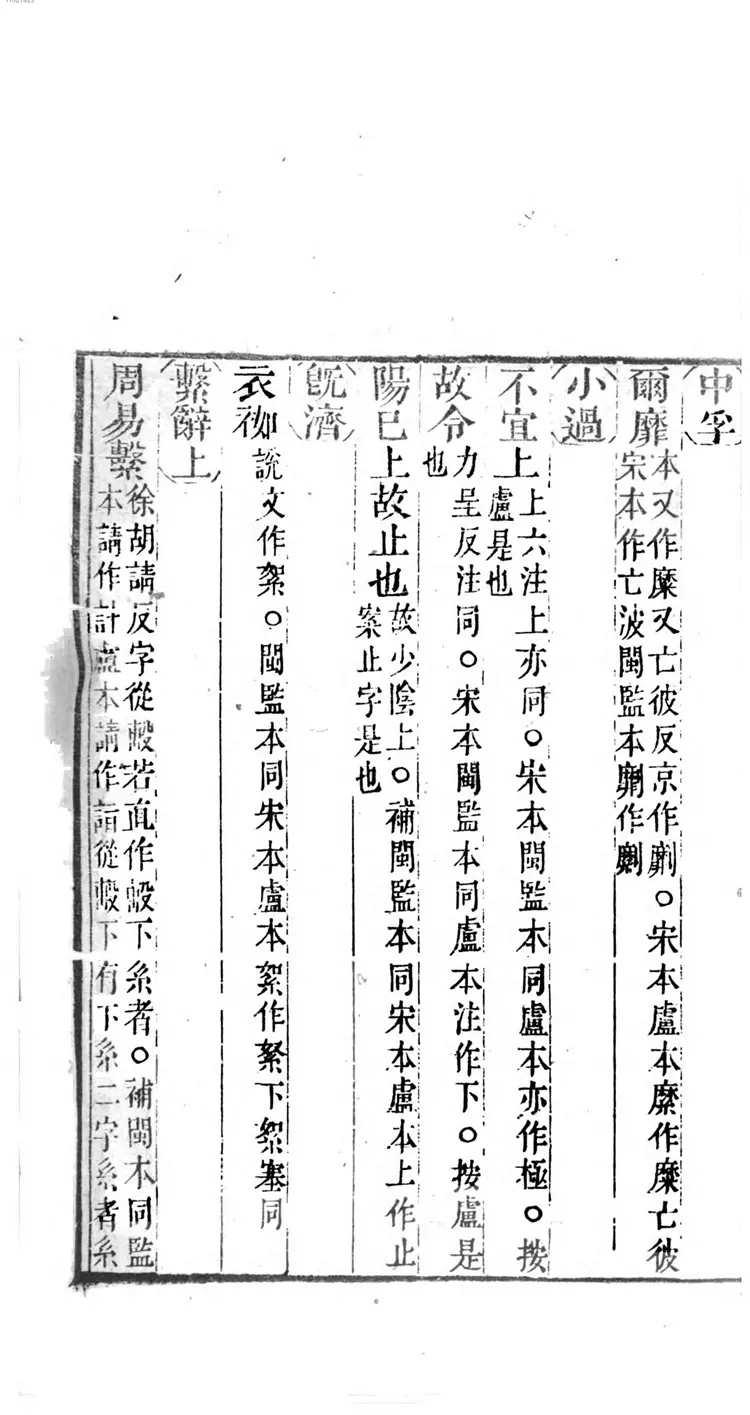 中孚
爾靡本又作糜又亡彼反京作劘。宋本盧本糜作糜亡彼
宋本作亡波閩監本劘作劘
小過
不宜上上六注上亦同。宋本閩監本同盧本亦作極。按
盧是也
故令力呈反注同。宋本閩監本同盧本注作下。按盧是
也
陽已上故止也故少陰上。補閩監本同宋本盧本上作止
案止字是也
旣濟
衣袽說文作絮。閩監本同宋本盧本絮作䋈下絮塞同
繫辭上
周易繫徐胡請反字從毄若直作毄下糸者。補閩本同監
本請作計盧本請作詣從毄下有下系二字糸者系